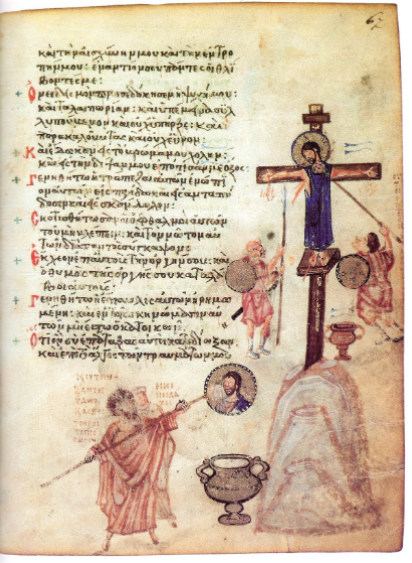 καὶ τὴν αἰσχύνην μου καὶ τὴν ἐντρο
πήν μου· ἐναντίον σου πάντες οἱ θλί
βοντές με·
Ὀνειδισμὸν προσεδόκησεν ἡ ψυχή μου·
καὶ ταλαιπωρίαν· καὶ ὑπέμεινα συλ
λυπούμενον καὶ οὐχ ὑπῆρξε· καὶ
παρακαλοῦντας καὶ οὐχ εὗρον·
Καὶ ἔδωκαν εἰς τὸ βρῶμά μου χολήν·
καὶ εἰς τὴν δίψαν μου ἐπότισάν με ὄξος·
Γενηθήτω ἡ τράπεζα αὐτῶν ἐνώπι
ον αὐτῶν εἰς παγίδα καὶ εἰς ἀνταπό
δοσιν καὶ εἰς σκάνδαλον·
Σκοτισθήτωσαν οἱ ὀφθαλμοὶ αὐτῶν
τοῦ μὴ βλέπειν· καὶ τὸν νῶτον αὐ
τῶν διὰ παντὸς σύγκαμψον·
Ἔκχεον ἐπ' αὐτοὺς τὴν ὀργήν σου· καὶ
ὁ θυμὸς τῆς ὀργῆς σου καταλά
βοι αὐτούς·
Γενηθήτω ἡ ἔπαυλις αὐτῶν ἠρημω
μένη· καὶ ἐν τοῖς σκηνώμασιν αὐ
τῶν μὴ ἔστω ὁ κατοικῶν·
Ὅτι ὃν σὺ ἐπάταξας αὐτοὶ κατεδίωξαν·
καὶ ἐπὶ τὸ ἄλγος τῶν τραυμάτων μου
67